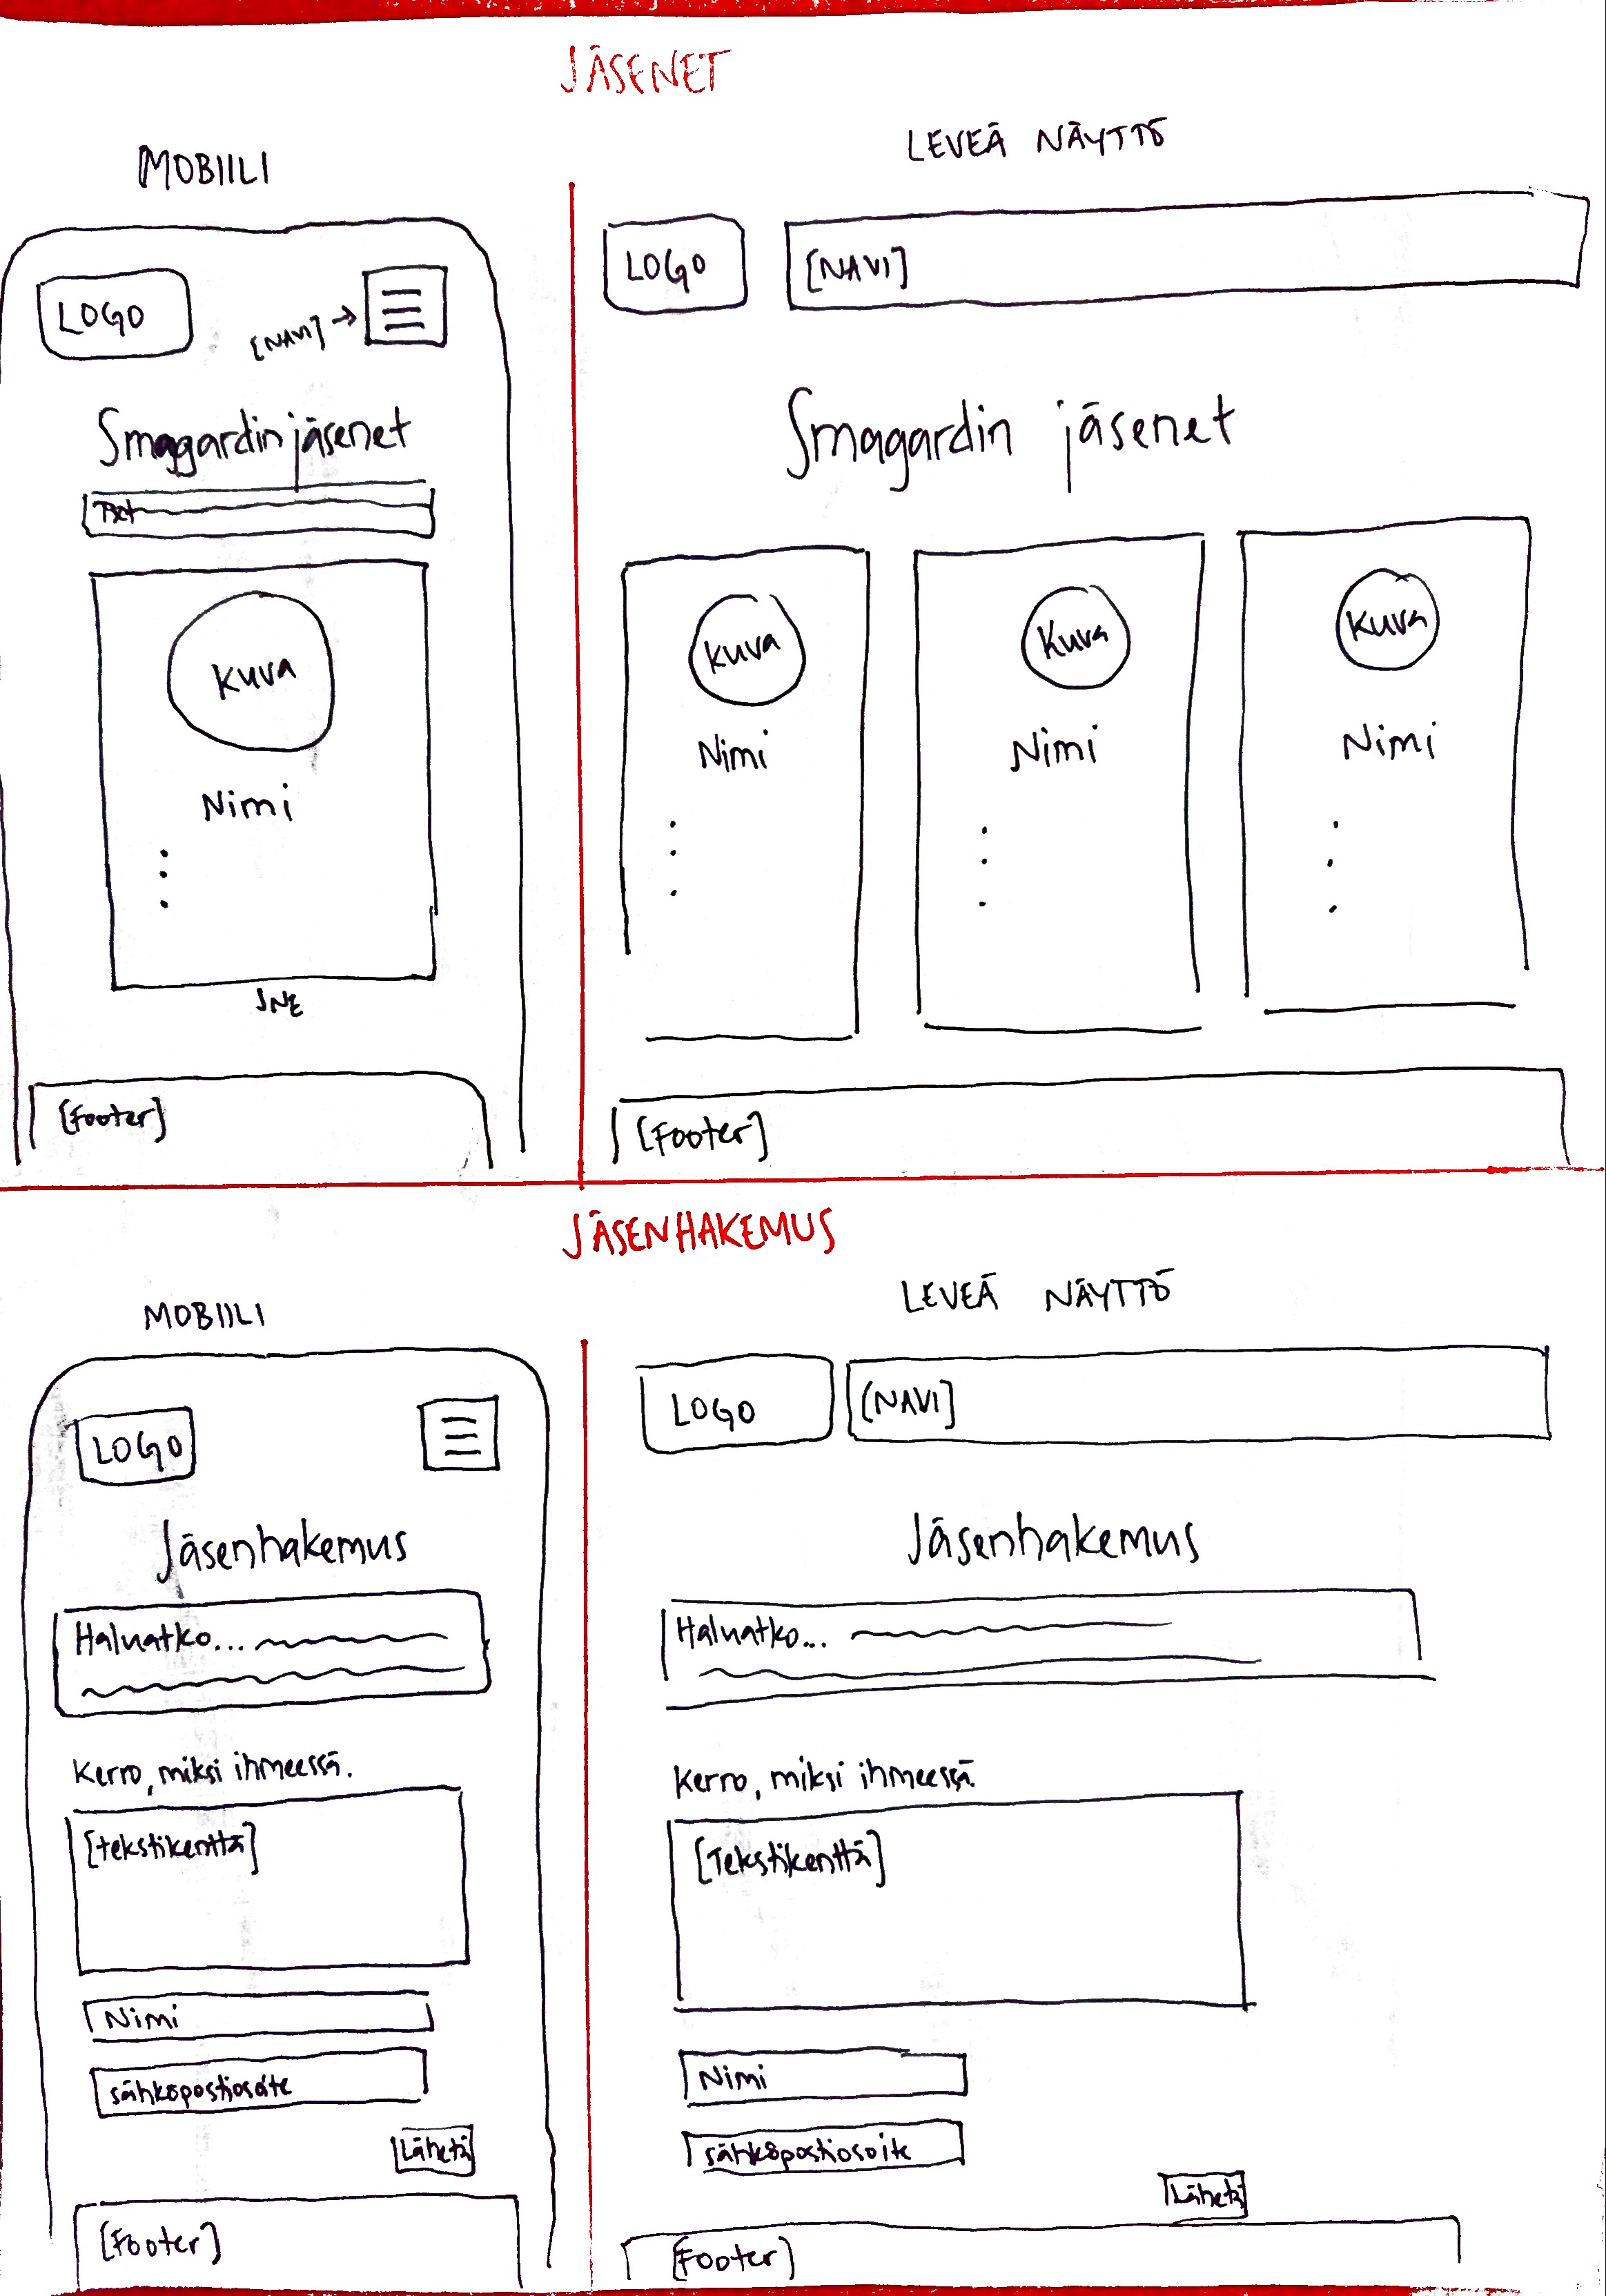 JÄSENET
MOBIILI
LOGO
[NAVI] →
Smagardin jäsenet
Txt
Kuva
Nimi
JNE
[Footer]
LEVEÄ NÄYTTÖ
LOGO
[NAVI]
Smagardin jäsenet
Kuva Kuva Kuva
Nimi Nimi Nimi
[Footer]
JÄSENHAKEMUS
MOBIILI
LOGO
Jäsenhakemus
Haluatko...
Kerro, miksi ihmeessä.
[tekstikenttä]
Nimi
sähköpostiosoite
Lähetä
[Footer]
LEVEÄ NÄYTTÖ
LOGO
[NAVI]
Jäsenhakemus
Haluatko...
Kerro, miksi ihmeessä.
[Tekstikenttä]
Nimi
sähköpostiosoite
Lähetä
[Footer]